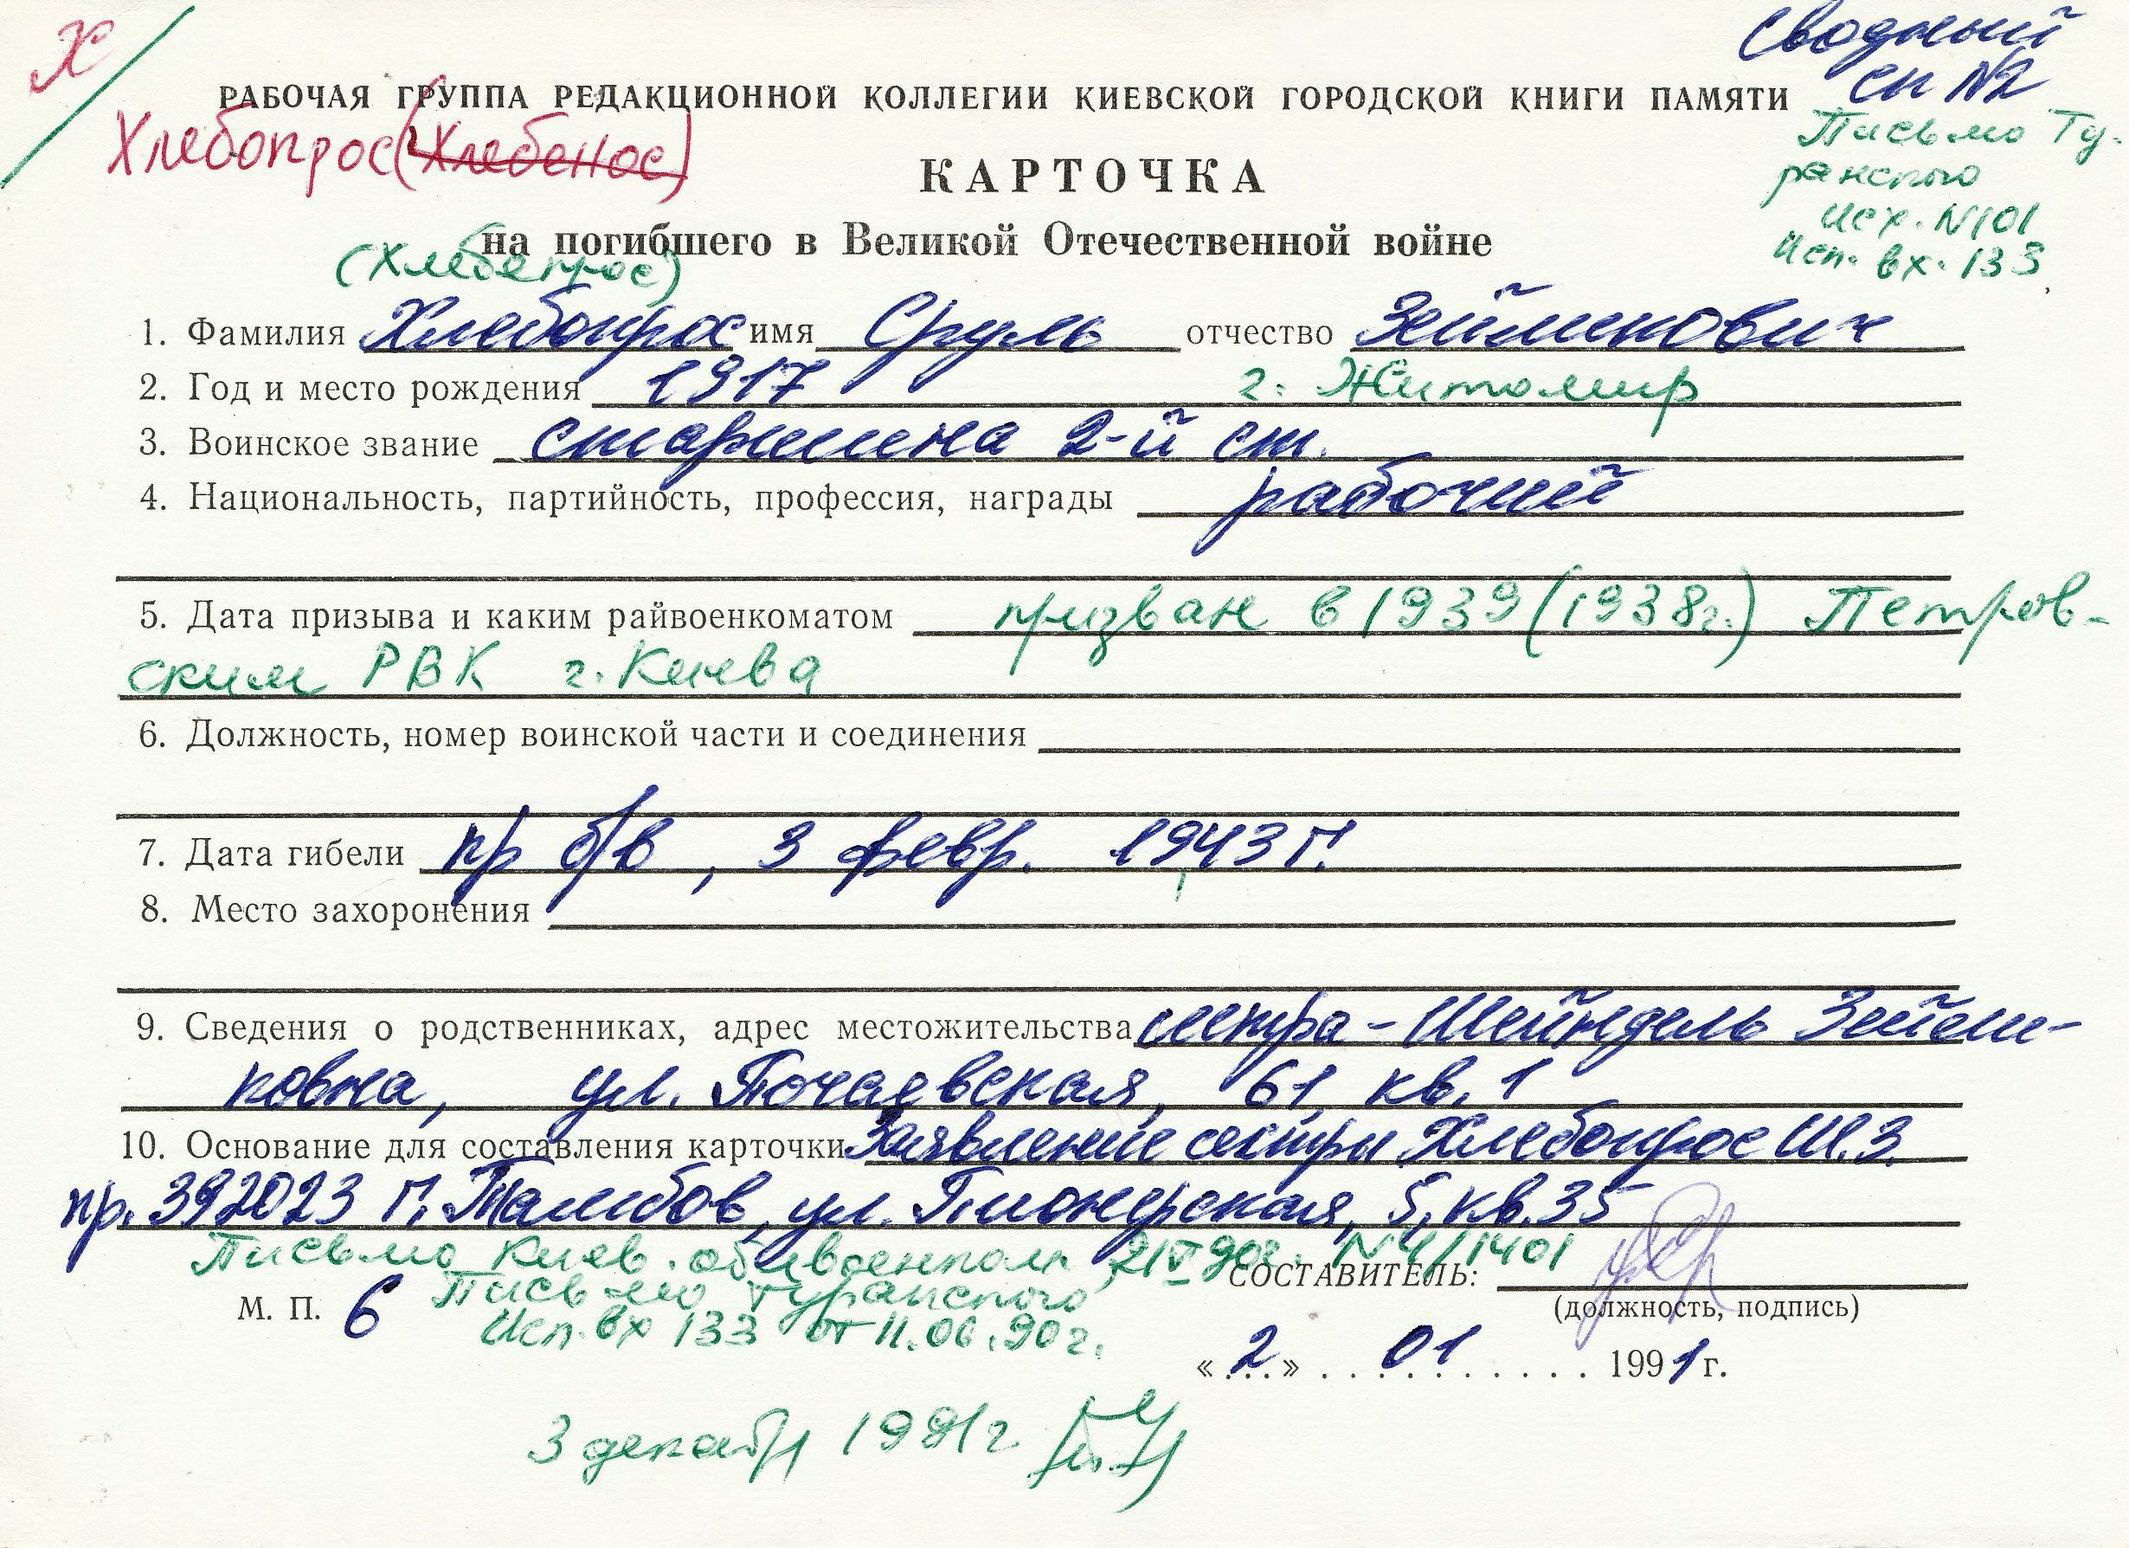 Х
Сводный
сп №2
РАБОЧАЯ ГРУППА РЕДАКЦИОННОЙ КОЛЛЕГИИ КИЕВСКОЙ ГОРОДСКОЙ КНИГИ ПАМЯТИ
Хлебопрос (Хлебенос)
Письмо Ту-
ранского
исх. N101
Исп. вх. 133
КАРТОЧКА
на погибшего в Великой Отечественной войне
(Хлебепрос)
1. Фамилия Хлебопрос имя Сруль отчество Зейликович
2. Год и место рождения 1917 г. Житомир
3. Воинское звание старшина 2-й ст.
4. Национальность, партийность, профессия, награды рабочий
5. Дата призыва и каким райвоенкоматом призван в 1939 (1938г.) Петров-
ским РВК г. Киева
6. Должность, номер воинской части и соединения
7. Дата гибели пр б/в, 3 февр. 1943 г.
8. Место захоронения
9. Сведения о родственниках, адрес местожительства сестра - Шейндель Зейли-
ковна, ул. Почаевская, 61, кв. 1
10. Основание для составления карточки Заявление сестры Хлебопрос Ш.З.
пр. 392023 г. Тамбов, ул. Пионерская, 5, кв. 35
Письмо Киев. облвоенком. N4/1401
СОСТАВИТЕЛЬ:
Письмо Туранского
М. П. 6
Исп. вх 133 от 11.06.90г.
(должность, подпись)
«2» 01 1991 г.
3 декабря 1991г